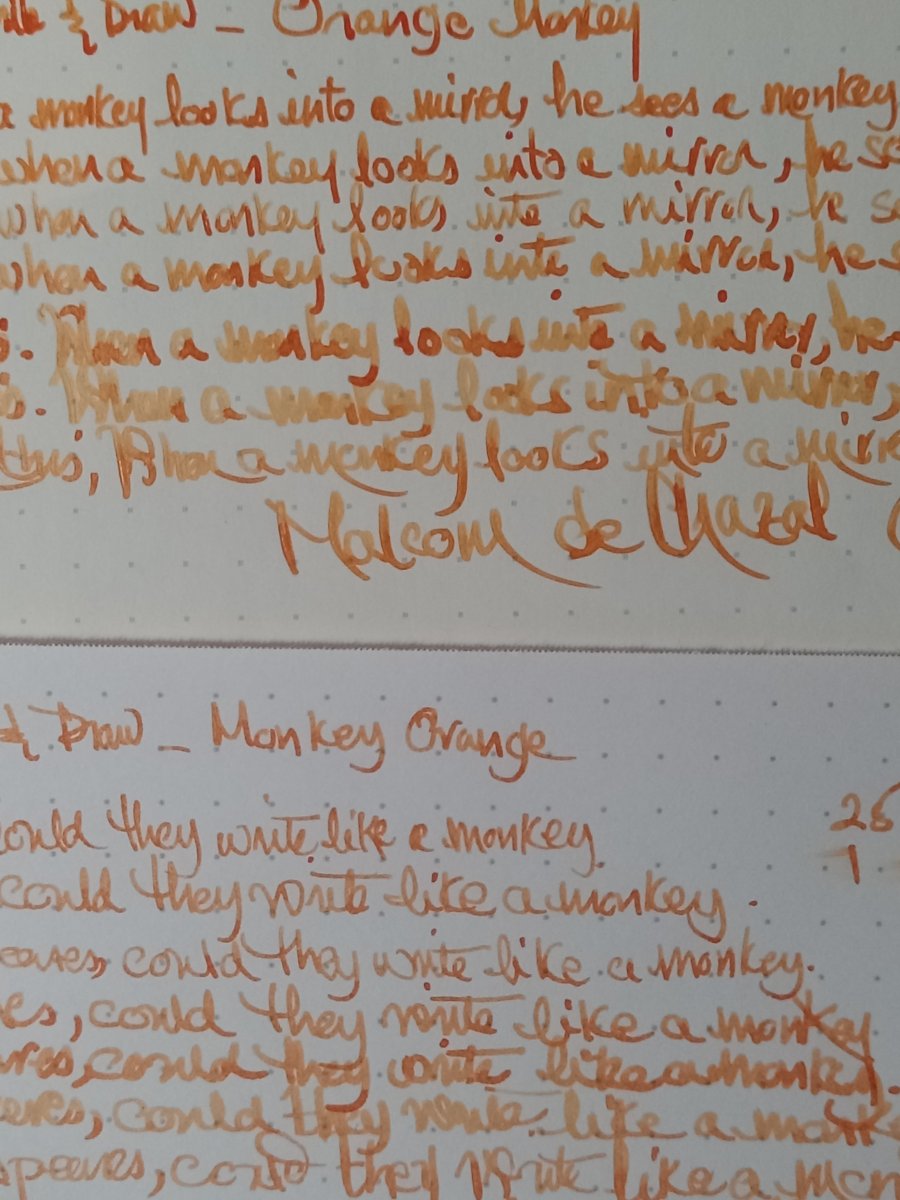 & Draw - Orange Monkey
a monkey looks into a mirror, he sees a monkey
when a monkey looks into a mirror, he se
when a monkey looks into a mirror, he s
when a monkey looks into a mirror, he s
s. When a monkey looks into a mirror, he
s. When a monkey looks into a mirror,
this, When a monkey looks into a mirr
Malcom de Chazal
& Draw - Monkey Orange
could they write like a monkey
could they write like a monkey.
could they write like a monkey.
es, could they write like a monkey
could they write like a monkey.
could they write like a monke
could they write like a mon